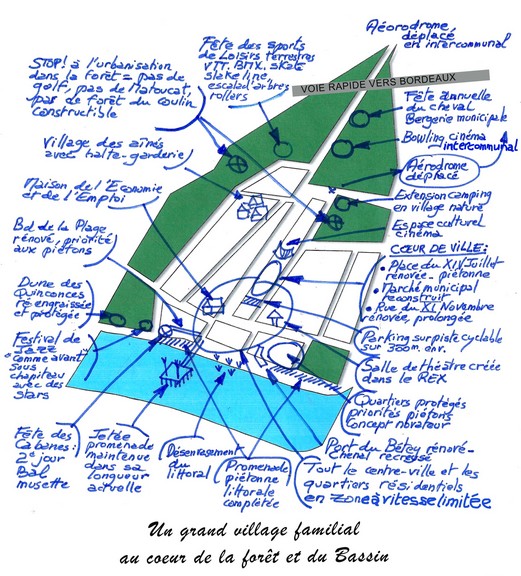 Aéorodrome
déplacé
en intercommunal
Fête des sports
de Loisirs terrestres
VTT. BMX. skate
slake line
escalad'arbres
rollers
STOP! à l'urbanisation
dans la forêt = pas de
golf, pas de Matoucat,
pas de forêt du coulin
constructible
VOIE RAPIDE VERS BORDEAUX
Fête annuelle
du cheval
Bergerie municipale
Bowling cinéma
intercommunal
Village des aînés
avec halte-garderie
Aérodrome
déplacé
Maison de l'Economie
et de l'Emploi
Extension camping
en village nature
Espace culturel
cinéma
Bd de la Plage
rénové, priorité
aux piétons
CŒUR DE VILLE:
• Place du XIV Juillet
rénovée - piétonne
• Marché municipal
reconstruit
• Rue du XI Novembre
rénovée, prolongée
Dune des
Quinconces
réengraissée
et protégée
Parking sur piste cyclable
sur 300m. env.
Festival de
Jazz
"comme avant"
sous
chapiteau
avec des
stars
Salle de théâtre créée
dans le REX
Quartiers protégés
priorités piétons
Concept novateur
Fête des
Cabanes:
2e jour
Bal
musette
Jetée
promenade
maintenue
dans sa
longueur
actuelle
Désenvasement
du
littoral
Promenade
piétonne
littorale
complétée
Port du Bétey rénové-
chenal recreusé
Tout le centre-ville et les
quartiers résidentiels
en zone à vitesse limitée
Un grand village familial
au coeur de la forêt et du Bassin